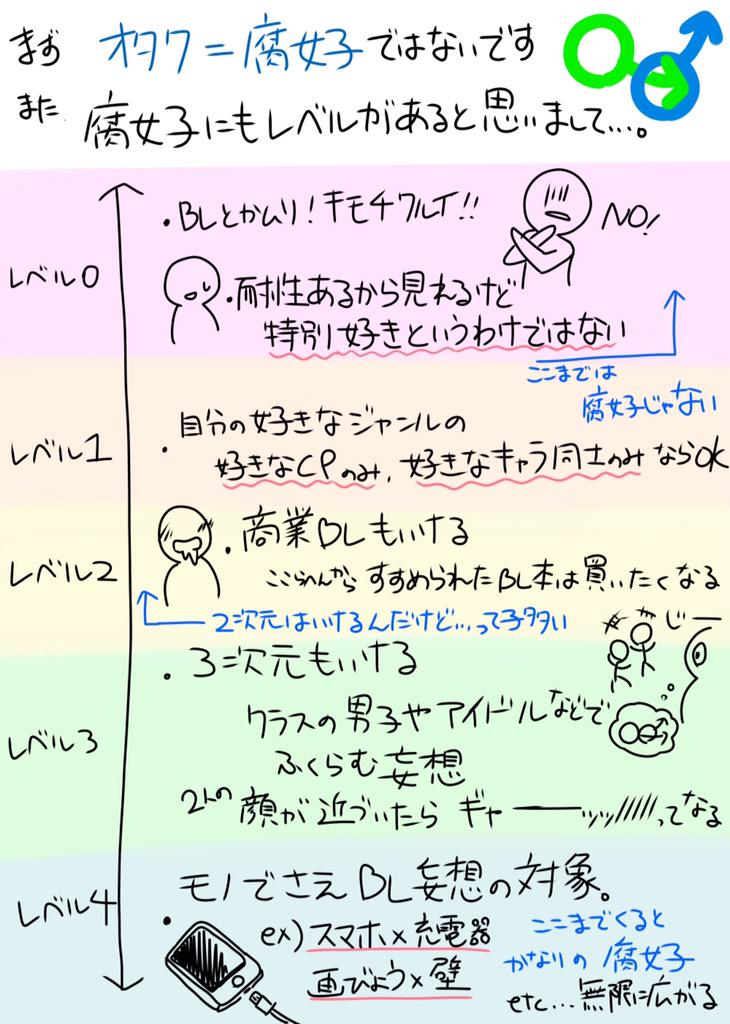 まず オタク＝腐女子ではないです
また 腐女子にもレベルがあると思いまして…。
レベル0
・BLとかムリ！キモチワルイ!!
NO!
・耐性あるから見えるけど
特別好きというわけではない
ここまでは
腐女子じゃない
レベル1
・自分の好きなジャンルの
好きなCPのみ、好きなキャラ同士のみならOK
レベル2
・商業BLもいける
ここらへんから すすめられたBL本は買いたくなる
2次元はいけるんだけど…って子多い
レベル3
・3次元もいける
じー
クラスの男子やアイドルなどで
ふくらむ妄想
2人の顔が近づいたら ギャーーーッッ/////ってなる
レベル4
・モノでさえBL妄想の対象。
ex)スマホ×充電器
画びょう×壁
ここまでくると
かなりの腐女子
etc…無限に広がる